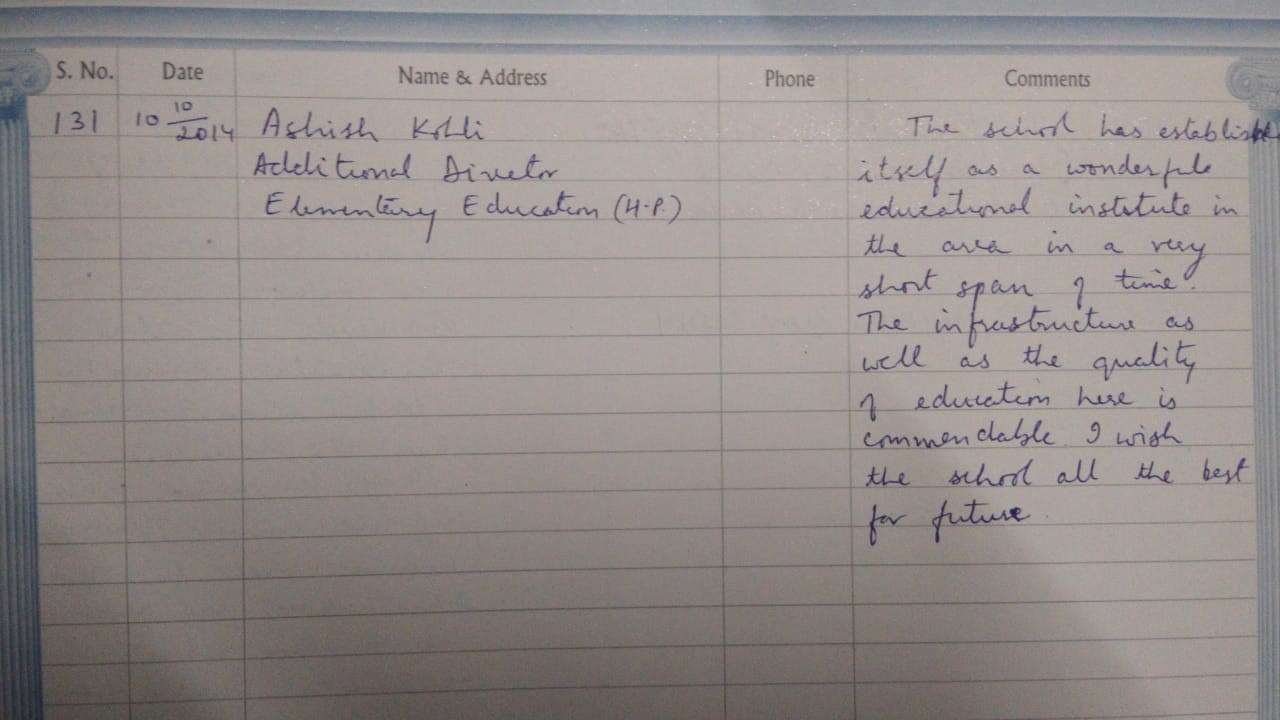 S. No. Date Name & Address Phone Comments
131 10 10/2014 Ashish Kohli The school has established
Additional Director itself as a wonderful
Elementary Education (H.P.) educational institute in
the area in a very
short span of time.
The infrastructure as
well as the quality
of education here is
commendable. I wish
the school all the best
for future.